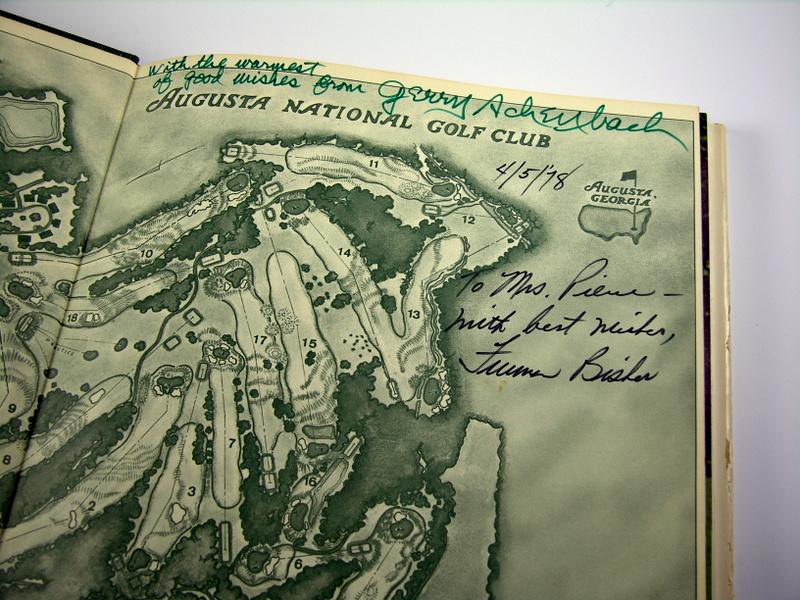 with the warmest
of good wishes from Gerry Achenbach
AUGUSTA NATIONAL GOLF CLUB
4/5/'78
AUGUSTA,
GEORGIA
To Mrs. Pierce –
with best wishes,
Furman Bisher
11
12
10
14
13
18
PRACTICE
17
15
9
7
8
3
16
2
6